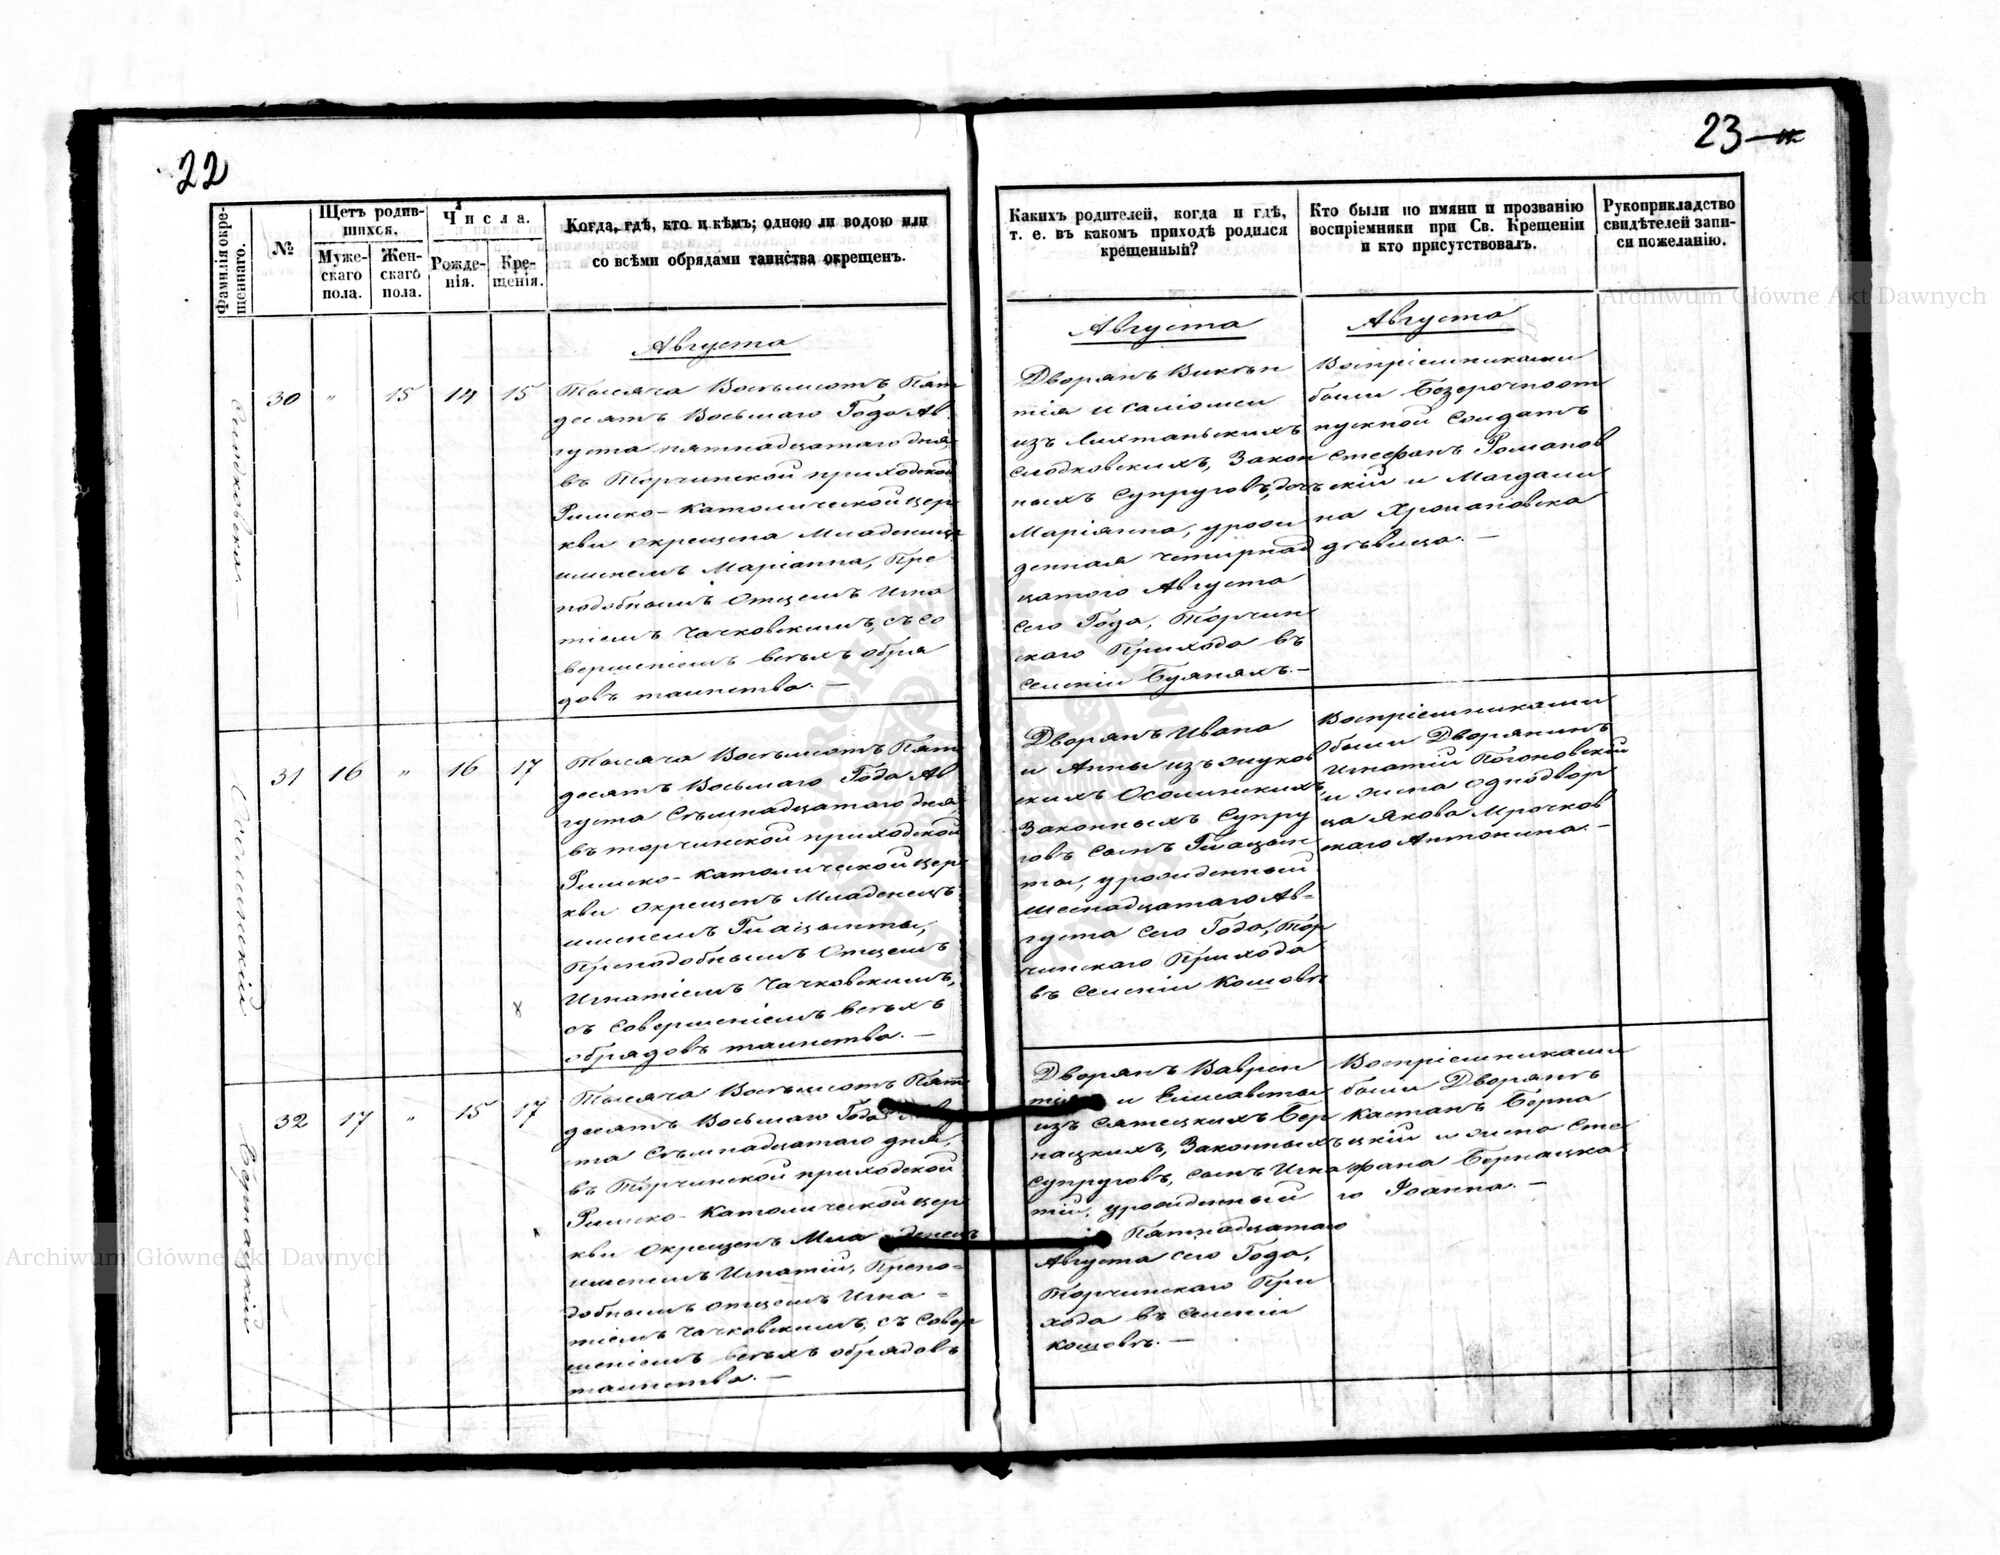 22
Фамилія окре-
щеннаго.
№
Щетъ родив-
шихся.
Муже-
скаго
пола.
Жен-
скаго
пола.
Числа.
Рожде-
нія.
Кре-
щенія.
Когда, гдѣ, кто и кѣмъ; одною ли водою или
со всѣми обрядами таинства окрещенъ.
Августа
30 " 15 14 15
Тысяча Восемьсотъ Пять
десятъ Восьмаго Года Ав
густа пятнадцатаго дня,
въ Торчинской приходской
Римско-Католической цер
кви окрещена Младенецъ
именемъ Маріанна, Пре
подобнымъ Отцемъ Игна
тіемъ Чачковскимъ, съ со
вершеніемъ всѣхъ обря
довъ таинства. —
31 16 " 16 17
Тысяча Восемьсотъ Пять
десятъ Восьмаго Года Ав
густа Семнадцатаго дня,
въ торчинской приходской
Римско-Католической цер
кви окрещенъ Младенецъ
именемъ
Преподобнымъ Отцемъ
Игнатіемъ Чачковскимъ,
съ совершеніемъ всѣхъ
обрядовъ таинства. —
Бернацкій
32 17 " 15 17
Тысяча Восемьсотъ Пять
десятъ Восьмаго Года Авгу
ста Семнадцатаго дня,
въ Торчинской приходской
Римско-Католической цер
кви Окрещенъ Младенецъ
именемъ Игнатій, Препо-
добнымъ отцемъ Игна-
тіемъ Чачковскимъ, съ совер
шеніемъ всѣхъ обрядовъ
таинства. —
23
Какихъ родителей, когда и гдѣ,
т. е. въ какомъ приходѣ родился
крещенный?
Кто были по имяни и прозванію
воспріемники при Св. Крещеніи
и кто присутствовалъ.
Рукоприкладство
свидѣтелей запи-
си пожеланію.
Августа
Дворянъ Викен
тія и Саломеи
изъ
Слодковскихъ, Закон
ныхъ Супруговъ, дочь
Маріянна, урож
денная четырнад
цатого Августа
сего Года, Торчин
скаго Прихода въ
селеніи Буянахъ. —
Августа
Воспріемниками
были Безсрочноот
пускной Солдатъ
Стефанъ Романов
скій и Магдали
на Хромановска
дѣвица. —
Дворянъ Ивана
и Анны изъ Жуков
скихъ Осолинскихъ,
Законныхъ Супру
говъ сынъ
урожденный
шеснадцатаго Ав-
густа сего Года, Тор
чинскаго Прихода
въ селеніи Кошовѣ
Воспріемниками
были Дворянинъ
Игнатій
и жена однодвор
ца Якова Мрочков
скаго Антонина. —
Дворянъ Ваврен
тія и Елисаветы
изъ Сятецкихъ Бер
нацкихъ, Законныхъ
Супруговъ, сынъ Игна
тій, урожденный
Пятнадцатаго
Августа сего Года,
Торчинскаго При
хода въ селеніи
кошовѣ. —
Воспріемниками
были Дворянъ
Каетанъ Берна
цкій и жена Сте
фана Бернацка
го Іоанна. —
Archiwum Główne Akt Dawnych
Archiwum Główne Akt Dawnych